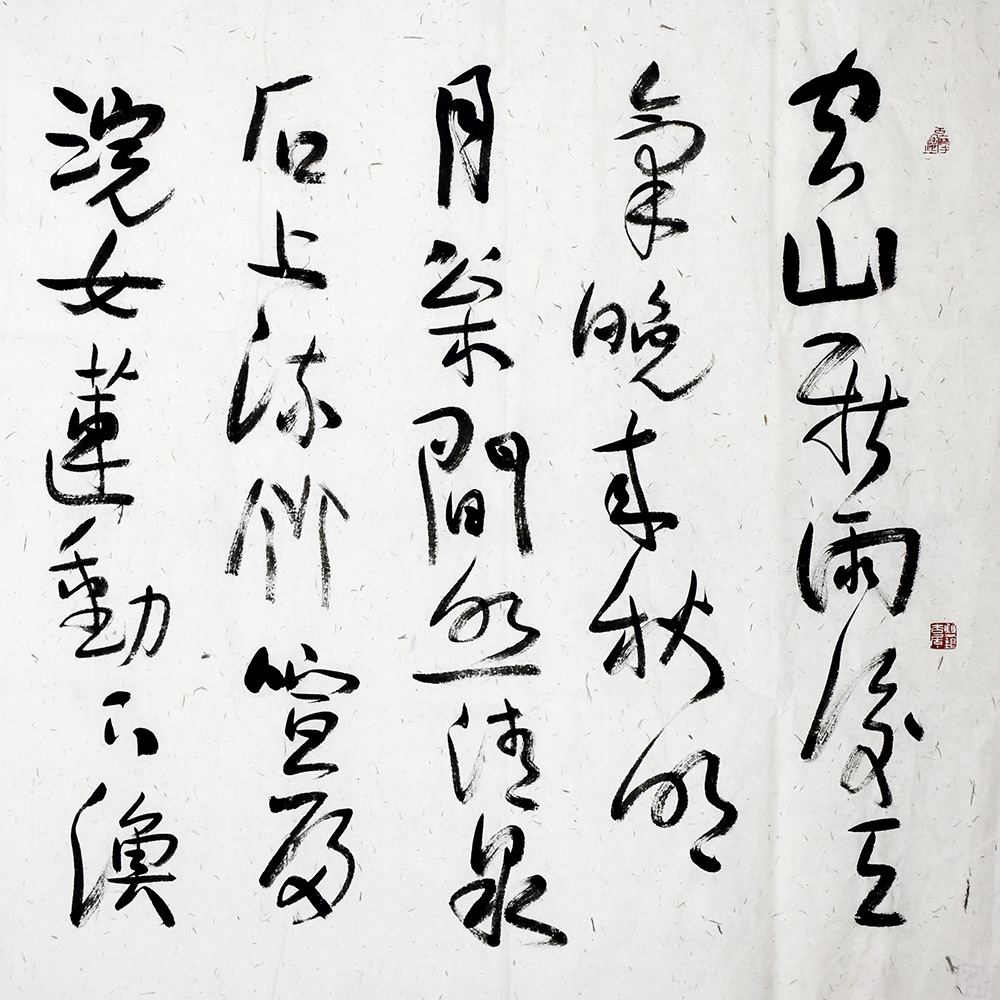 空山新雨後天
氣晚來秋明
月松間照清泉
石上流竹喧歸
浣女蓮動下漁